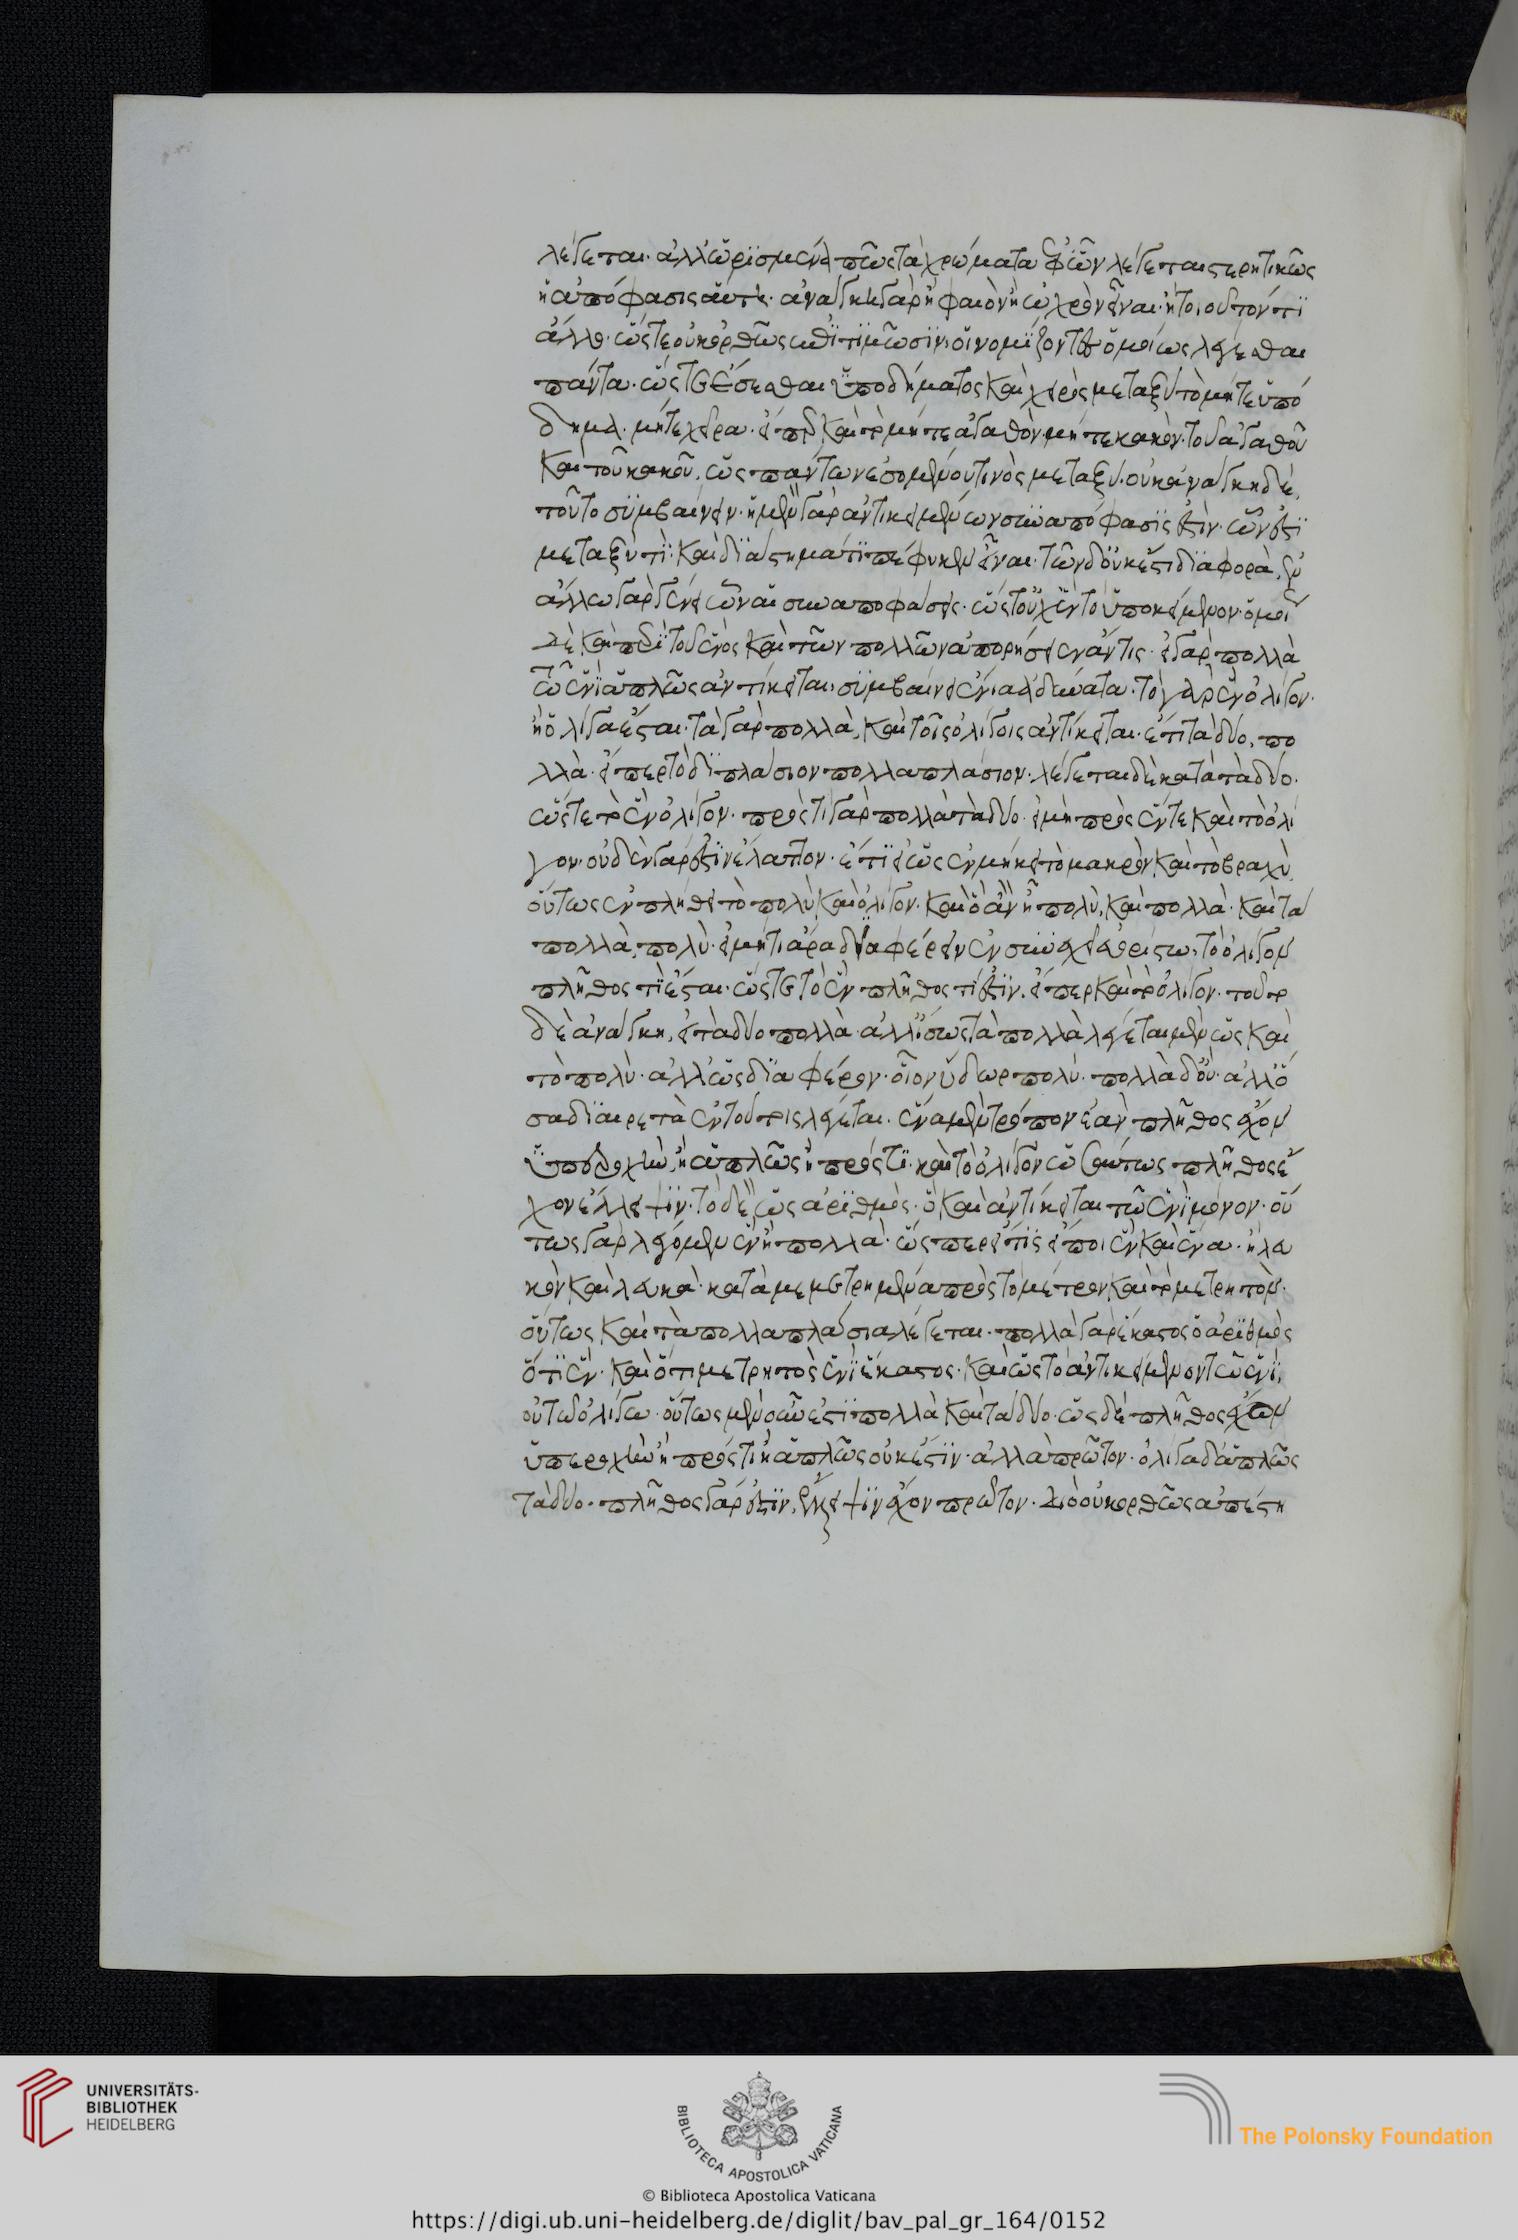 λέγεται· ἀλλ' ὡρισμένα πως τὰ χρώματα ἐφ' ὧν λέγεται στερητικῶς
ἡ ἀπόφασις αὕτη· ἀνάγκη γὰρ ἢ φαιὸν ἢ ὠχρὸν εἶναι· ἢ τοιοῦτόν τι
ἄλλο· ὥστε οὐκ ὀρθῶς ἐπιτιμῶσιν οἱ νομίζοντες ὁμοίως λέγεσθαι
πάντα· ὥστε ἔσεσθαι ὑποδήματος καὶ χειρὸς μεταξὺ τὸ μήτε ὑπό
δημα μήτε χεῖρα· εἴπερ καὶ τὸ μήτε ἀγαθὸν μήτε κακὸν· τοῦ ἀγαθοῦ
καὶ τοῦ κακοῦ, ὡς πάντων ἐσομένου τινὸς μεταξύ· οὐκ ἀνάγκη δὲ
τοῦτο συμβαίνειν· ἡ μὲν γὰρ ἀντικειμένων συναπόφασίς ἐστιν· ὧν ἐστι
μεταξύ τι· καὶ διάστημά τι πέφυκεν εἶναι· τῶν δ' οὐκ ἔστι διαφορά, ἐν
ἄλλω γὰρ γένει ὧν αἱ συναποφάσεις· ὥστ' οὐχ ἓν τὸ ὑποκείμενον· ὁμοί
ως δὲ καὶ περὶ τοῦ ἑνὸς καὶ τῶν πολλῶν ἀπορήσειεν ἄν τις· εἰ γὰρ πολλὰ
τῶ ἑνὶ ἁπλῶς ἀντίκειται, συμβαίνει ἔνια ἀδύνατα· τὸ γὰρ ἓν ὀλίγον·
ἢ ὀλίγα ἔσται· τὰ γὰρ πολλὰ, καὶ τοῖς ὀλίγοις ἀντίκειται· ἔτι τὰ δύο, πο
λλὰ· εἴπερ τὸ διπλάσιον πολλαπλάσιον· λέγεται δὲ κατὰ τὰ δύο·
ὥστε τὸ ἓν ὀλίγον· πρὸς τί γὰρ πολλὰ τὰ δύο· εἰ μὴ πρὸς ἕν τε καὶ τὸ ὀλί
γον· οὐδὲν γάρ ἐστιν ἔλαττον· ἔτι εἰ ὡς ἐν μήκει τὸ μακρὸν καὶ τὸ βραχὺ
οὕτως ἐν πλήθει τὸ πολὺ καὶ ὀλίγον· καὶ ὃ ἂν ἦ πολὺ, καὶ πολλὰ· καὶ τὰ
πολλὰ, πολὺ· εἰ μή τι ἄρα διαφέρειν ἐν συνεχεῖ ἀορίστω, τὸ ὀλίγον
πλῆθός τι ἔσται· ὥστε τὸ ἓν πλῆθός τί ἐστιν, εἴπερ καὶ τὸ ὀλίγον· τοῦτο
δὲ ἀνάγκη, εἰ τὰ δύο πολλὰ· ἀλλ' ἴσως τὰ πολλὰ λέγεται μὲν ὡς καὶ
τὸ πολὺ· ἀλλ' ὡς διαφέρον· οἷον ὕδωρ πολὺ· πολλὰ δ' οὔ· ἀλλ' ὅ
σα διαιρετὰ ἐν τούτοις λέγεται· ἕνα μὲν τρόπον ἐὰν πλῆθος ἔχον
ὑπεροχὴν, ἢ ἁπλῶς ἢ πρός τι· καὶ τὸ ὀλίγον ὡσαύτως πλῆθος ἔ
χον ἔλλειψιν· τὸ δὲ ὡς ἀριθμὸς· ὃ καὶ ἀντίκειται τῶ ἑνὶ μόνον· οὕ
τως γὰρ λέγομεν ἓν ἢ πολλὰ· ὥσπερ εἴ τις εἴποι ἓν καὶ ἕνα· ἢ λευ
κὸν καὶ λευκὰ· καὶ τὰ μεμετρημένα πρὸς τὸ μέτρον καὶ τὸ μετρητὸν·
οὕτως καὶ τὰ πολλαπλάσια λέγεται· πολλὰ γὰρ ἕκαστος ὁ ἀριθμὸς
ὅτι ἓν· καὶ ὅτι μετρητὸς ἑνὶ ἕκαστος· καὶ ὡς τὸ ἀντικείμενον τῶ ἑνὶ,
οὐ τῶ ὀλίγω· οὕτως μὲν οὖν ἐστὶ πολλὰ καὶ τὰ δύο· ὡς δὲ πλῆθος ἔχον
ὑπεροχὴν ἢ πρός τι ἢ ἁπλῶς οὐκ ἔστιν· ἀλλὰ πρῶτον· ὀλίγα δ' ἁπλῶς
τὰ δύο· πλῆθος γάρ ἐστιν, ἔλλειψιν ἔχον πρῶτον· διὸ οὐκ ὀρθῶς ἀπέστη
UNIVERSITÄTS-
BIBLIOTHEK
HEIDELBERG
BIBLIOTECA APOSTOLICA VATICANA
The Polonsky Foundation
© Biblioteca Apostolica Vaticana
https://digi.ub.uni-heidelberg.de/diglit/bav_pal_gr_164/0152